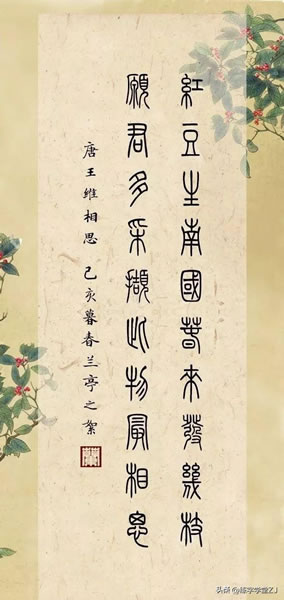 紅豆生南國春來發幾枝
願君多采擷此物最相思
唐王維相思 己亥暮春兰亭之絮
头条@练字学堂ZJ